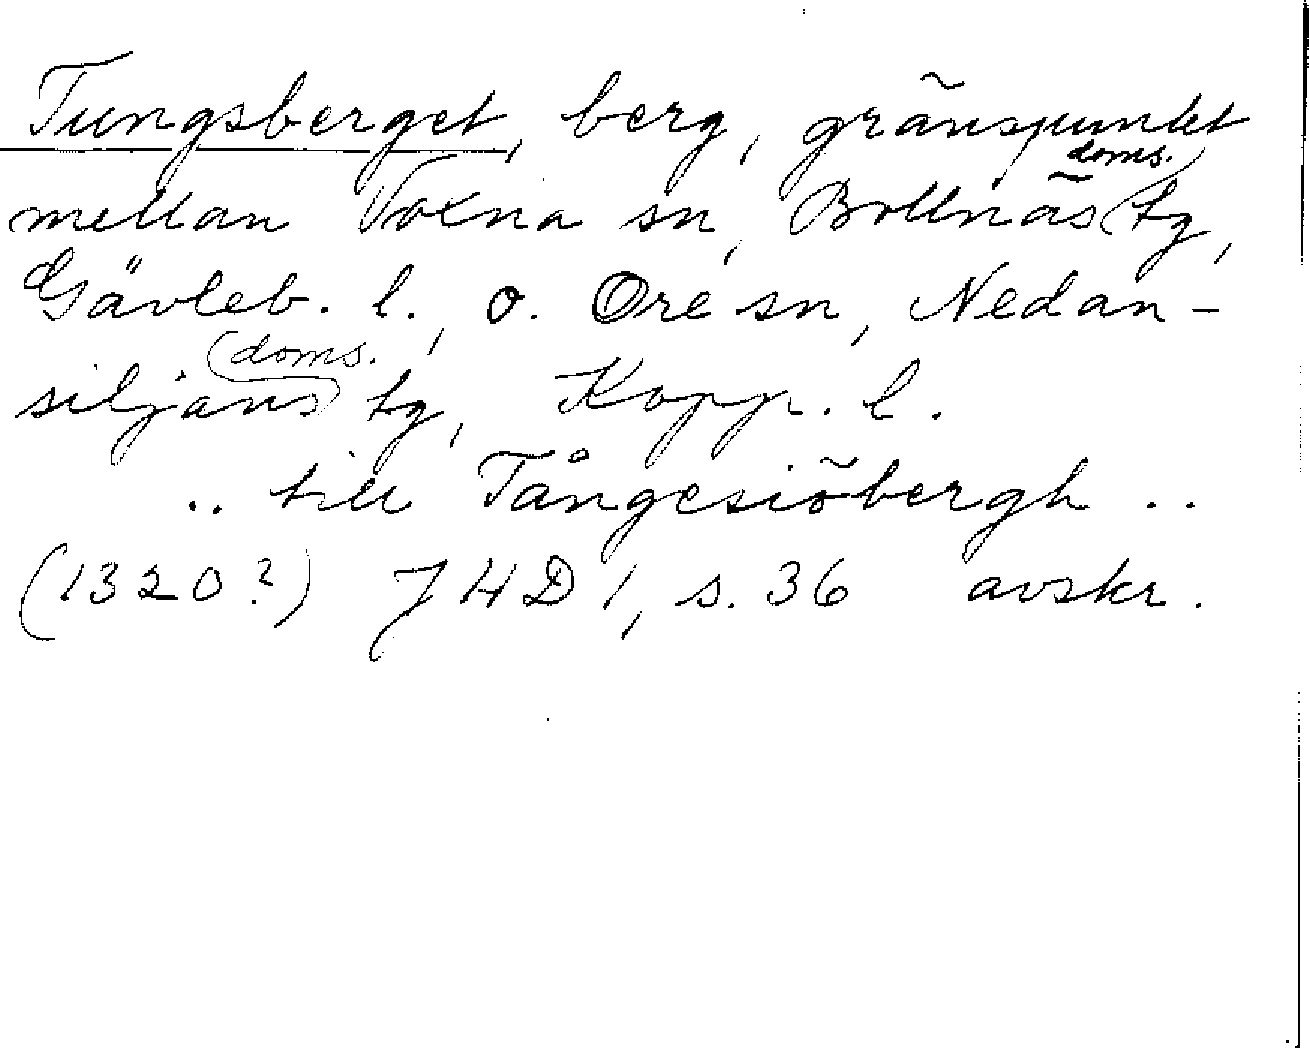 Tungsberget, berg, gränspunkt
mellan Voxna sn, Bollnäs doms. tg,
Gävleb. l., o. Ore sn, Nedan-
siljans doms. tg, Kopp. l.
.. till Tångesiöbergh ..
(1320?) JHD 1, s. 36 avskr.